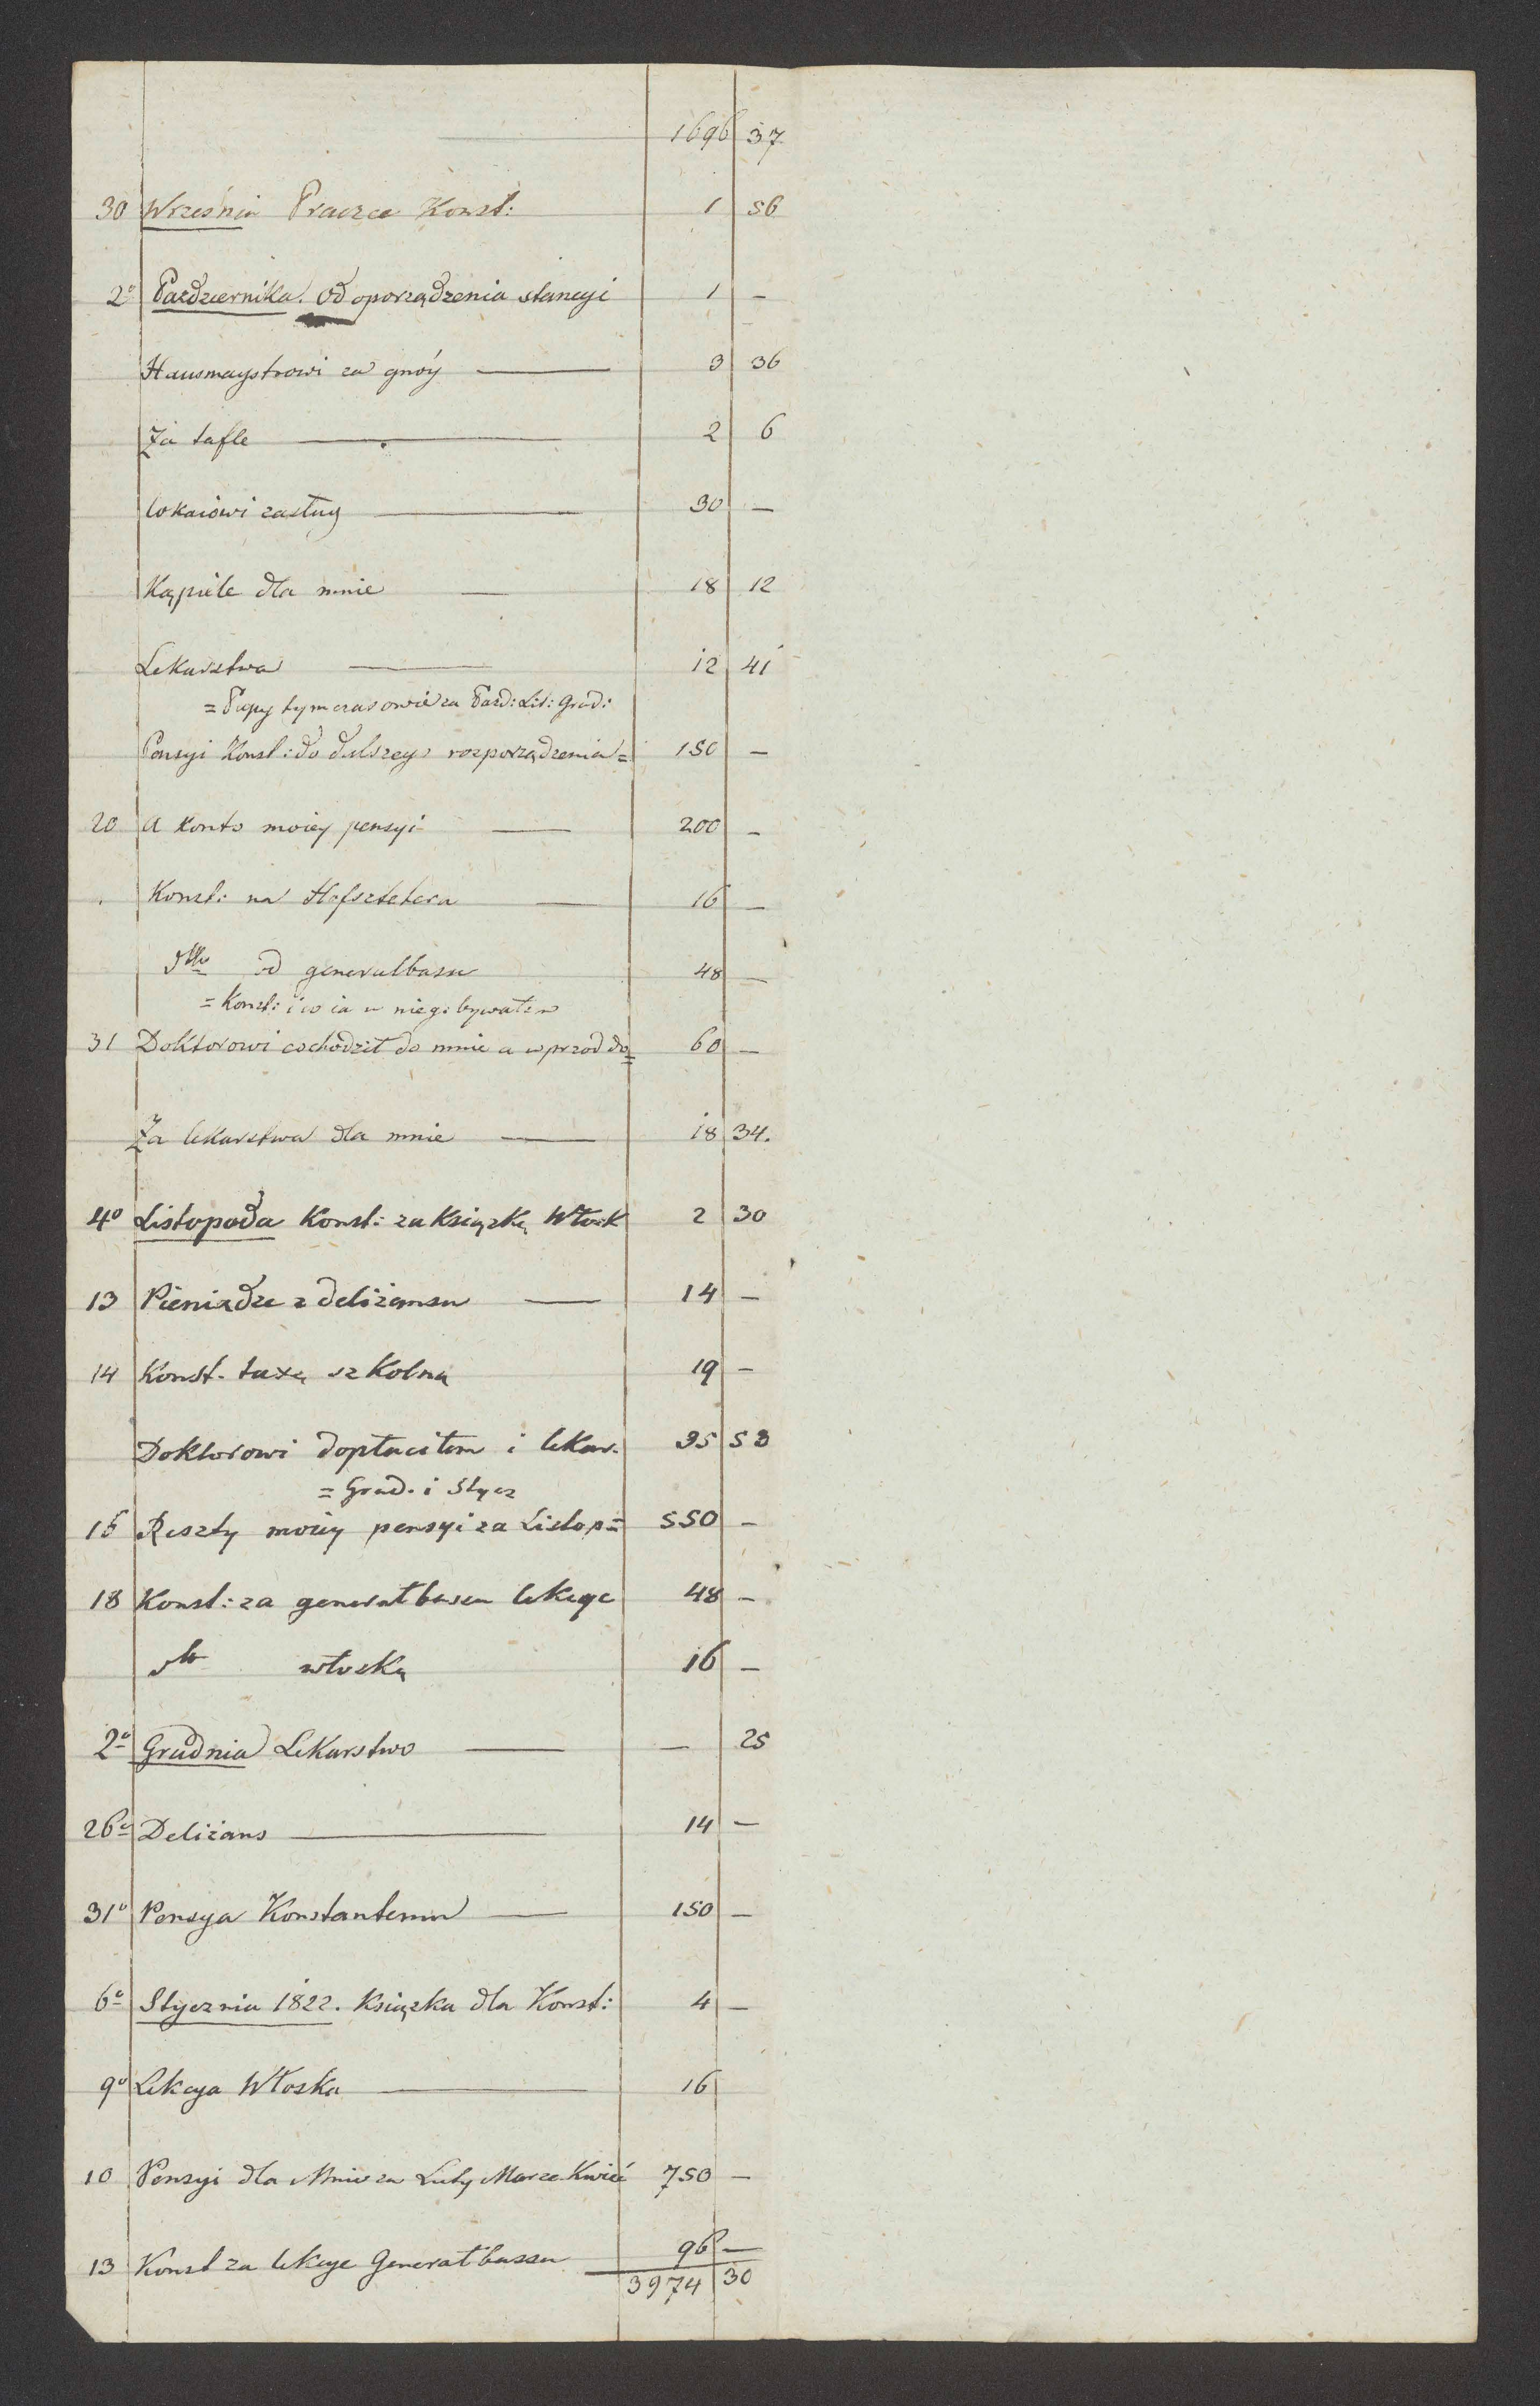 1696 37
30 Września Praczce Konst: 1 56
2o Pazdziernika. Od oporządzenia stancyi 1 —
Hausmaystrowi za gnóy — 3 36
Za tafle — 2 6
lokaiowi zasług — 30 —
Kąpiele dla mnie — 18 12
Lekarstwa — 12 41
= Papy tymczasowie za Pazd: List: Grud:
Pensyi Konst: do dalszego rozporządzenia = 150 —
20 A konto moiey pensyi — 200 —
Konst: na Hofsztetera — 16 —
dtto od generalbasu 48 —
= Konst: i co ia u niego bywałem
31 Doktorowi co chodził do mnie a wprzod do = 60 —
Za lekarstwa dla mnie — 18 34.
4o Listopada Konst: za Książkę Włosk 2 30
13 Pieniądze z deliżansu — 14 —
14 Konst. taxę szkolną 19 —
Doktorowi dopłaciłem i lekar. 35 53
= Grud. i Stycz
15 Reszty moiey pensyi za Listop = 550 —
18 Konst: za generałbasu lekcye 48 —
dto włoską 16 —
2o Grudnia Lekarstwo — — 25
26o Deliżans — 14 —
31o Pensya Konstantemu — 150 —
6o Stycznia 1822. Książka dla Konst: 4 —
9o Lekcya Włoska — 16
10 Pensyi dla Mnie za Luty Marze. Kwieć 750 —
13 Konst za lekcye Generałbassu 96 —
3974 30